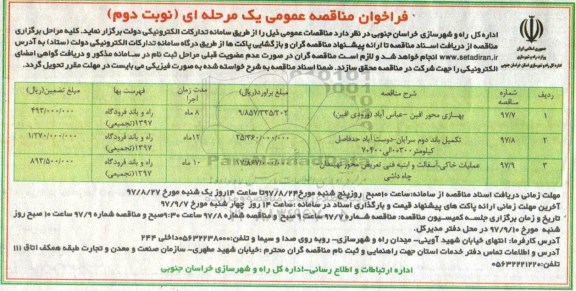 فراخوان مناقصه عمومی یک مرحله ای (نوبت دوم)
اداره کل راه و شهرسازی خراسان جنوبی در نظر دارد مناقصات عمومی ذیل را از طریق سامانه تدارکات الکترونیکی دولت برگزار نماید. کلیه مراحل برگزاری
مناقصه از دریافت اسناد مناقصه تا ارائه پیشنهاد مناقصه گران و بازگشایی پاکت ها از طریق درگاه سامانه تدارکات الکترونیکی دولت (ستاد) به آدرس
www.setadiran.ir انجام خواهد شد و لازم است مناقصه گران در صورت عدم عضویت قبلی مراحل ثبت نام در سامانه مذکور و دریافت گواهی امضای
الکترونیکی را جهت شرکت در مناقصه محقق سازند. ضمنا اسناد مناقصه به شرح خواسته شده به صورت فیزیکی می بایست در مهلت مقرر تحویل گردد.
ردیف شماره مناقصه شرح مناقصه مبلغ برآورد(ریال) مدت زمان اجرا فهرست بها مبلغ تضمین(ریال)
۱ ۹۷/۷ بهسازی محور افین -عباس آباد (ورودی افین) ۹/۸۵۷/۳۳۵/۲۰۲ ۸ ماه راه و باند فرودگاه ۱۳۹۷(تجمیعی) ۴۹۳/۰۰۰/۰۰۰
۲ ۹۷/۸ تکمیل باند دوم سرایان-دوست آباد حدفاصل کیلومتر ۳۰۰+۰ الی ۴۰۰+۷ ۲۵/۳۶۰/۰۰۰/۰۰۰ ۱۲ماه راه و باند فرودگاه ۱۳۹۷(تجمیعی) ۱/۲۷۰/۰۰۰/۰۰۰
۳ ۹۷/۹ عملیات خاکی،آسفالت و ابنیه فنی تعریض محور نهبندان- چاه داشی ۱۰ ماه راه و باند فرودگاه ۱۳۹۷(تجمیعی) ۸۹۳/۵۰۰/۰۰۰
مهلت زمانی دریافت اسناد مناقصه از سامانه:ساعت ۱۰صبح روزپنج شنبه مورخ۹۷/۸/۲۴تا ساعت ۱۴روز یک شنبه مورخ ۹۷/۸/۲۷
آخرین مهلت زمانی ارائه پاکت های پیشنهاد قیمت و بارگذاری اسناد در سامانه :ساعت ۱۴ روز چهار شنبه مورخ ۹۷/۹/۷
تاریخ و زمان برگزاری جلسه کمیسیون مناقصه: مناقصه شماره ۹۷/۷ ساعت ۹صبح و مناقصه شماره ۹۷/۸ ساعت ۹:۳۰صبح و مناقصه شماره ۹۷/۹ ساعت ۱۰ صبح روز
شنبه مورخ ۹۷/۹/۱۰ در محل دفتر مدیرکل.
آدرس کارفرما: انتهای خیابان شهید آوینی- میدان راه و شهرسازی- روبه روی صدا و سیما و تلفن:۰۵۶۳۲۲۳۸۰۰۰داخلی ۲۴۴
آدرس و اطلاعات تماس دفتر خدمات استان جهت راهنمایی و ثبت نام مناقصه گران محترم:خیابان شهید مطهری- سازمان صنعت و معدن و تجارت طبقه همکف اتاق ۱۱۱
تلفن:۰۵۶۳۲۲۲۱۲۲۰
اداره ارتباطات و اطلاع رسانی-اداره کل راه و شهرسازی خراسان جنوبی